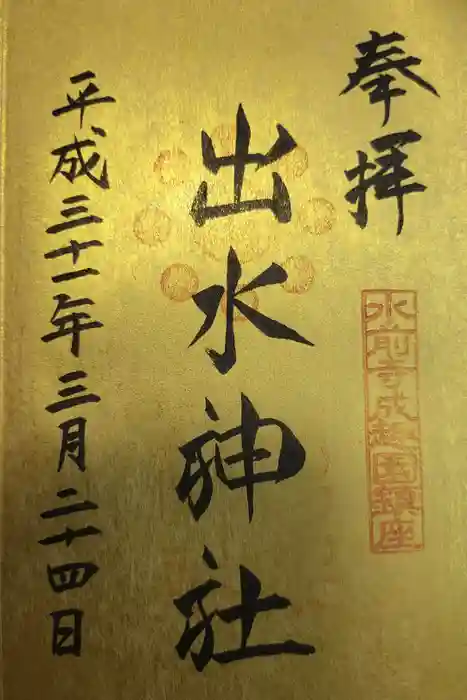 奉拝
水前寺成趣園鎮座
出水神社
平成三十一年三月二十四日